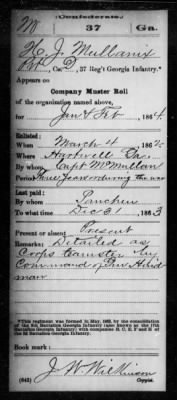 (Confederate.)
M 37 Ga.
H. J. Mullanix
Pvt, Co. D, 37 Reg't Georgia Infantry.*
Appears on
Company Muster Roll
of the organization named above,
for Jan & Feb, 1864
Enlisted:
When March 4, 1862
Where Hartwell Ga.
By whom Capt McMullan
Period three years or during the war
Last paid:
By whom
To what time Dec 31, 1863
Present or absent Present
Remarks: Detailed as
Corps Teamster by
Command of Gen Hind
man
*This regiment was formed in May, 1863, by the consolidation
of the 3d Battalion Georgia Infantry
Battalion Georgia Infantry) with companies
Book mark:
J. W. Wilkinson
(642) Copyist.